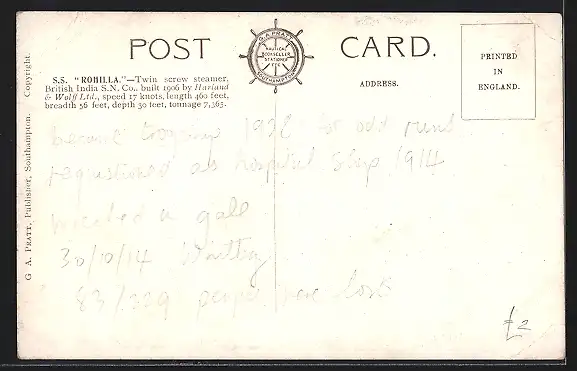 POST CARD.
G. A. PRATT
NAUTICAL
BOOKSELLER
STATIONER
ETC
SOUTHAMPTON
PRINTED
IN
ENGLAND.
ADDRESS.
S.S. "ROHILLA."—Twin screw steamer,
British India S.N. Co., built 1906 by Harland
& Wolff Ltd., speed 17 knots, length 460 feet,
breadth 56 feet, depth 30 feet, tonnage 7,365.
G A. PRATT, Publisher, Southampton. Copyright.
became 190 for odd runs
requestioned as hospital ship 1914
wrecked in gale
30/10/14 Whitby
83/229 people were lost
£2